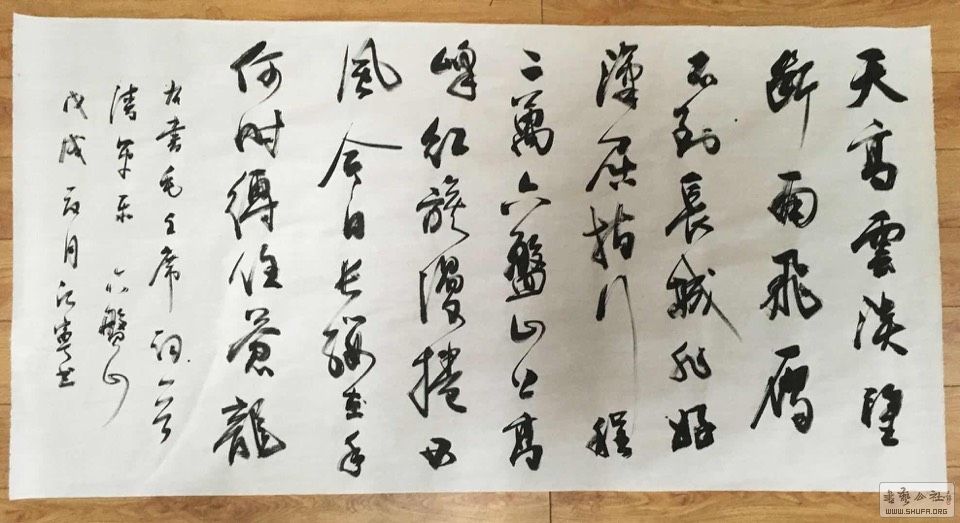 天高雲淡望
斷南飛雁
不到長城非好
漢屈指行程
二萬六盤山上高
峰紅旗漫捲西
風今日長纓在手
何時縛住蒼龍
右書毛主席詞一首
清平樂六盤山
戊戌月
書藝公社
WWW.SHUFA.ORG